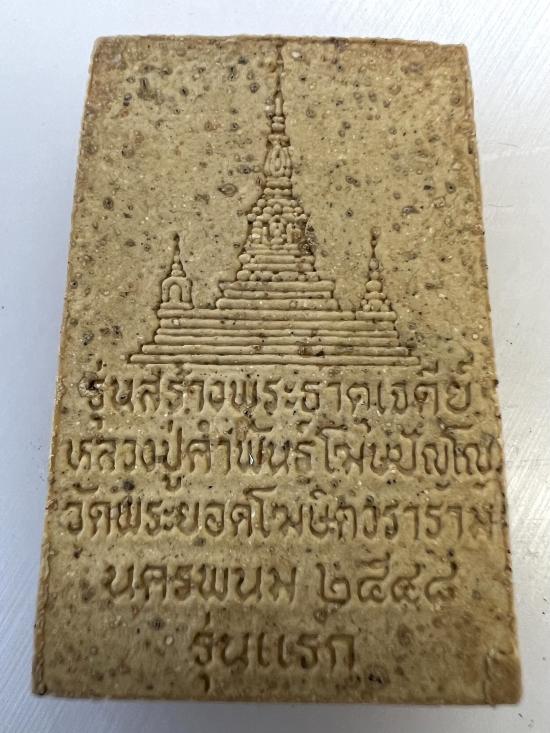 รุ่นสร้างพระธาตุเจดีย์
หลวงปู่คำพันธ์ โฆษปัญโญ
วัดพระยอดโฆษิตวราราม
นครพนม ๒๕๔๘
รุ่นแรก